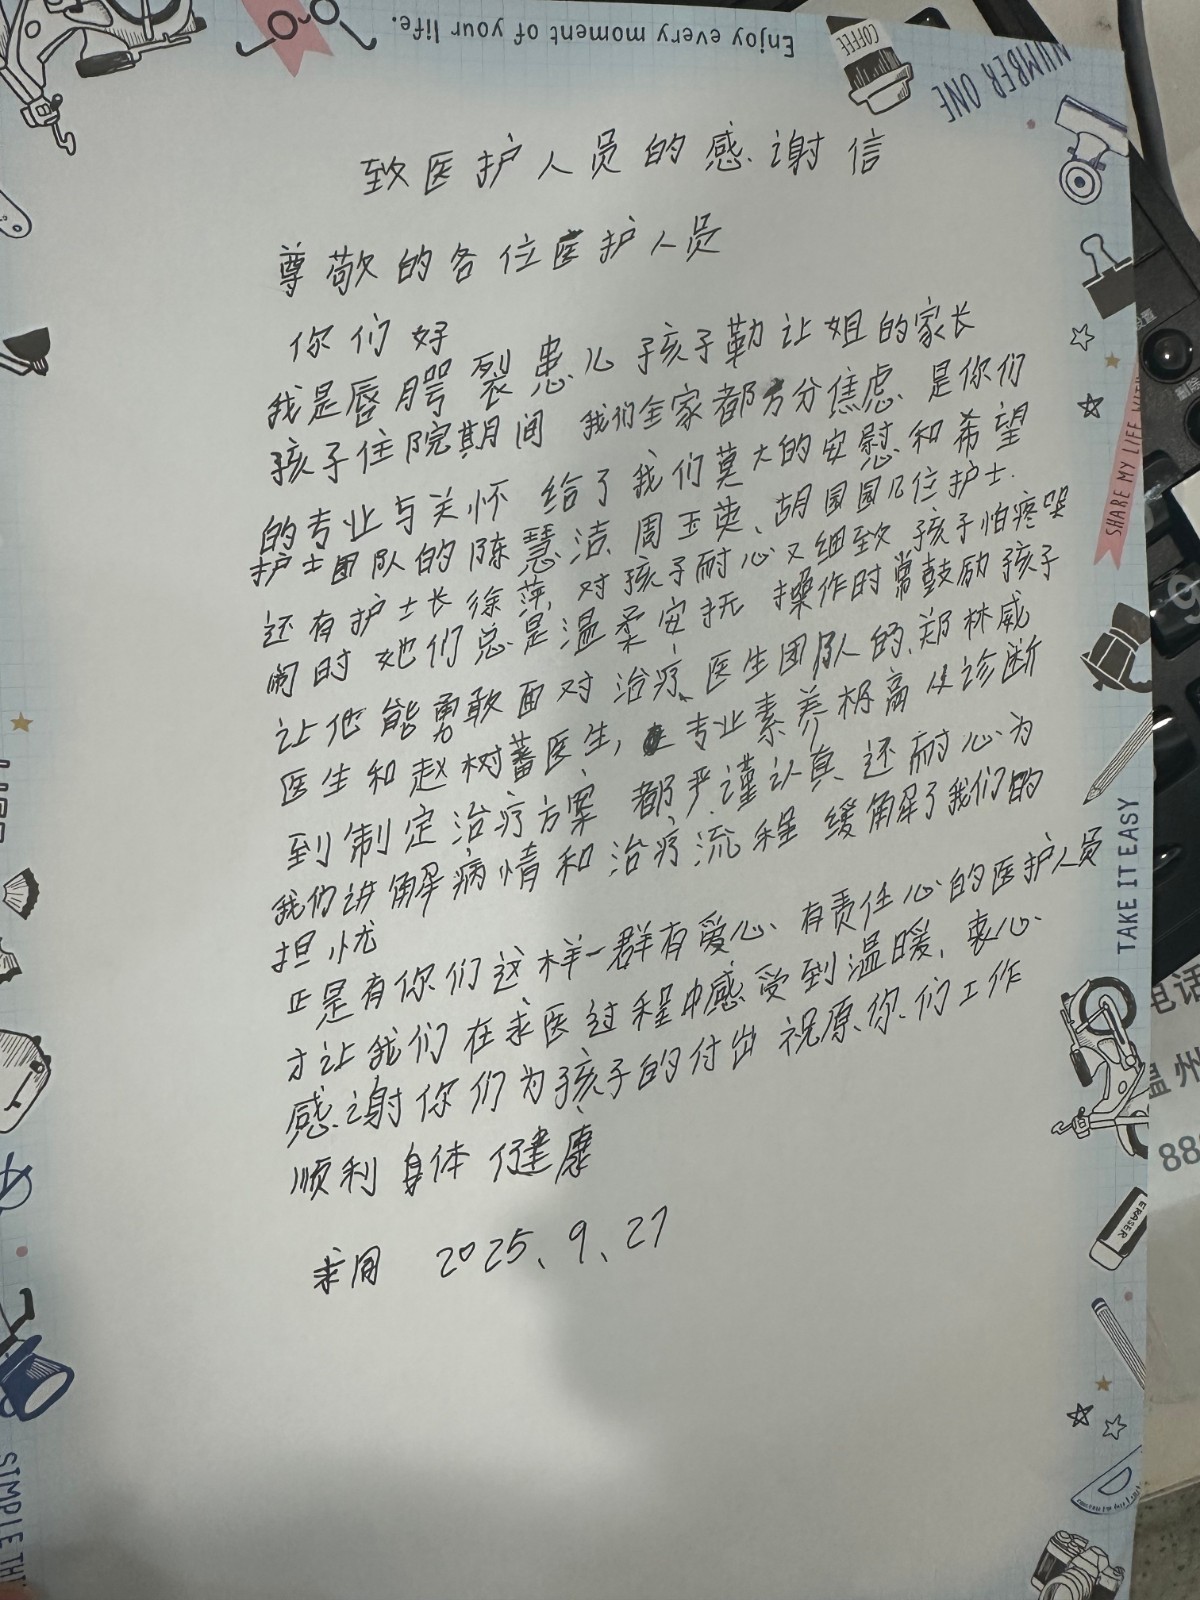 Enjoy every moment of your life.
COFFEE
NUMBER ONE
致医护人员的感谢信
尊敬的各位医护人员
你们好
我是唇腭裂患儿孩子勒让姐的家长
孩子住院期间 我们全家都万分焦虑 是你们
的专业与关怀 给了我们莫大的安慰和希望
护士团队的陈慧洁、周玉英、胡圆圆几位护士.
还有护士长徐萍, 对孩子耐心又细致 孩子怕疼哭
闹时 她们总是温柔安抚 操作时常鼓励孩子
让他能勇敢面对治疗、医生团队的郑林威
医生和赵树蕃医生, 专业素养极高 从诊断
到制定治疗方案 都严谨认真 还耐心为
我们讲解病情和治疗流程 缓解了我们的
担忧
正是有你们这样一群有爱心、有责任心的医护人员
才让我们在求医过程中感受到温暖, 衷心
感谢你们为孩子的付出 祝原你们工作
顺利 身体 健康
2025、9、27
SHARE MY LIFE WI
TAKE IT EASY
ERASER
SIMPLE THI
电话
温州
88
9